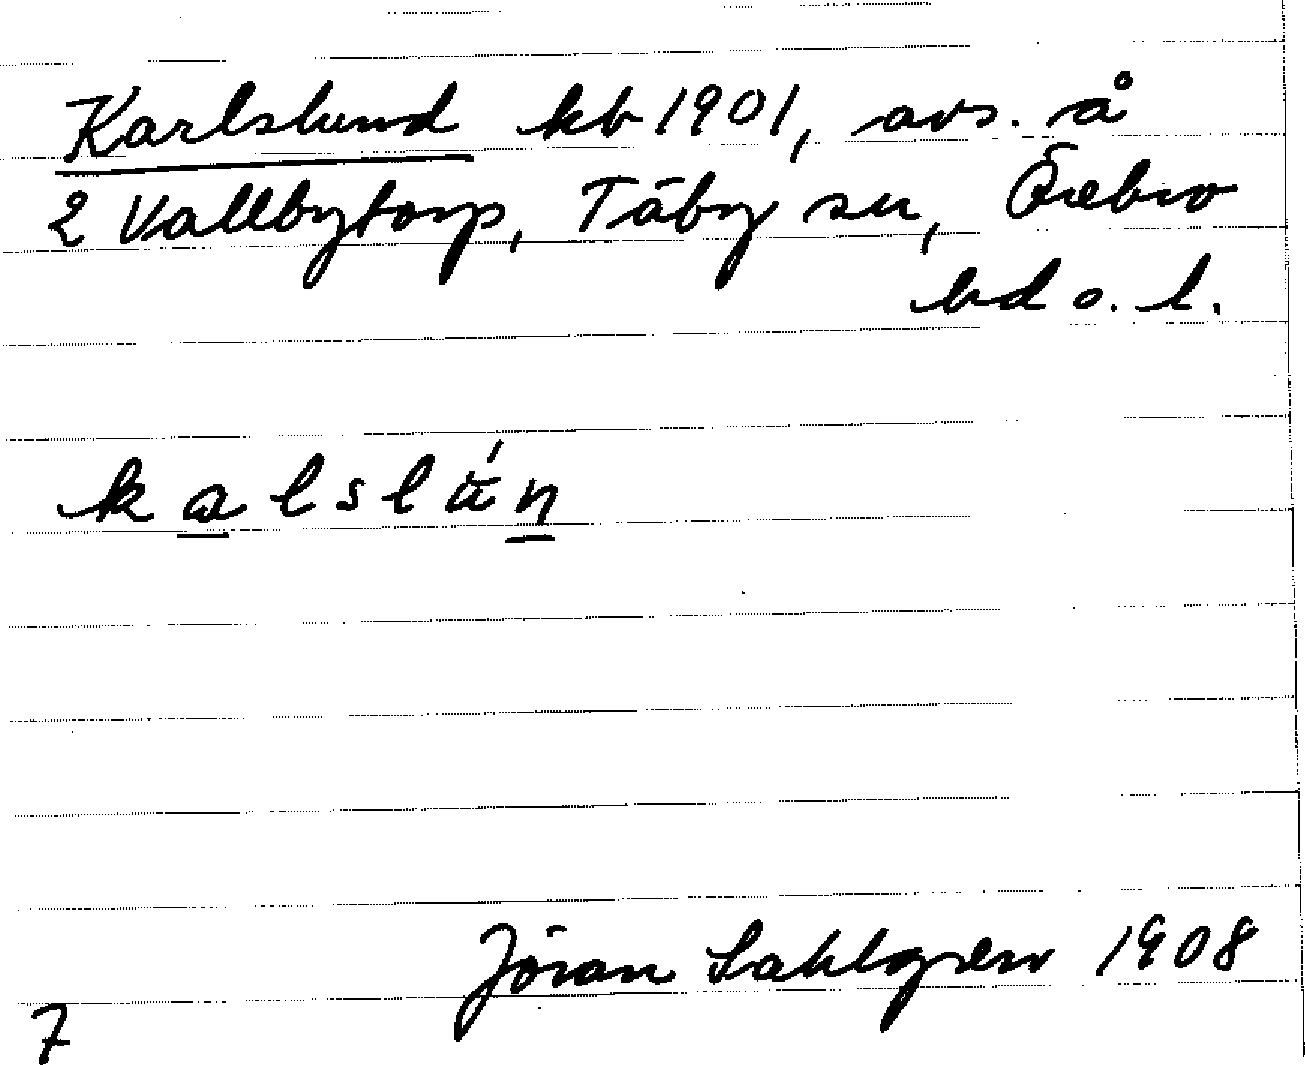 Karlslund kb 1901, avs. å
2 Vallbytorp, Täby sn, Örebro
hd o. l.
kalslún
Jöran Sahlgren 1908
7